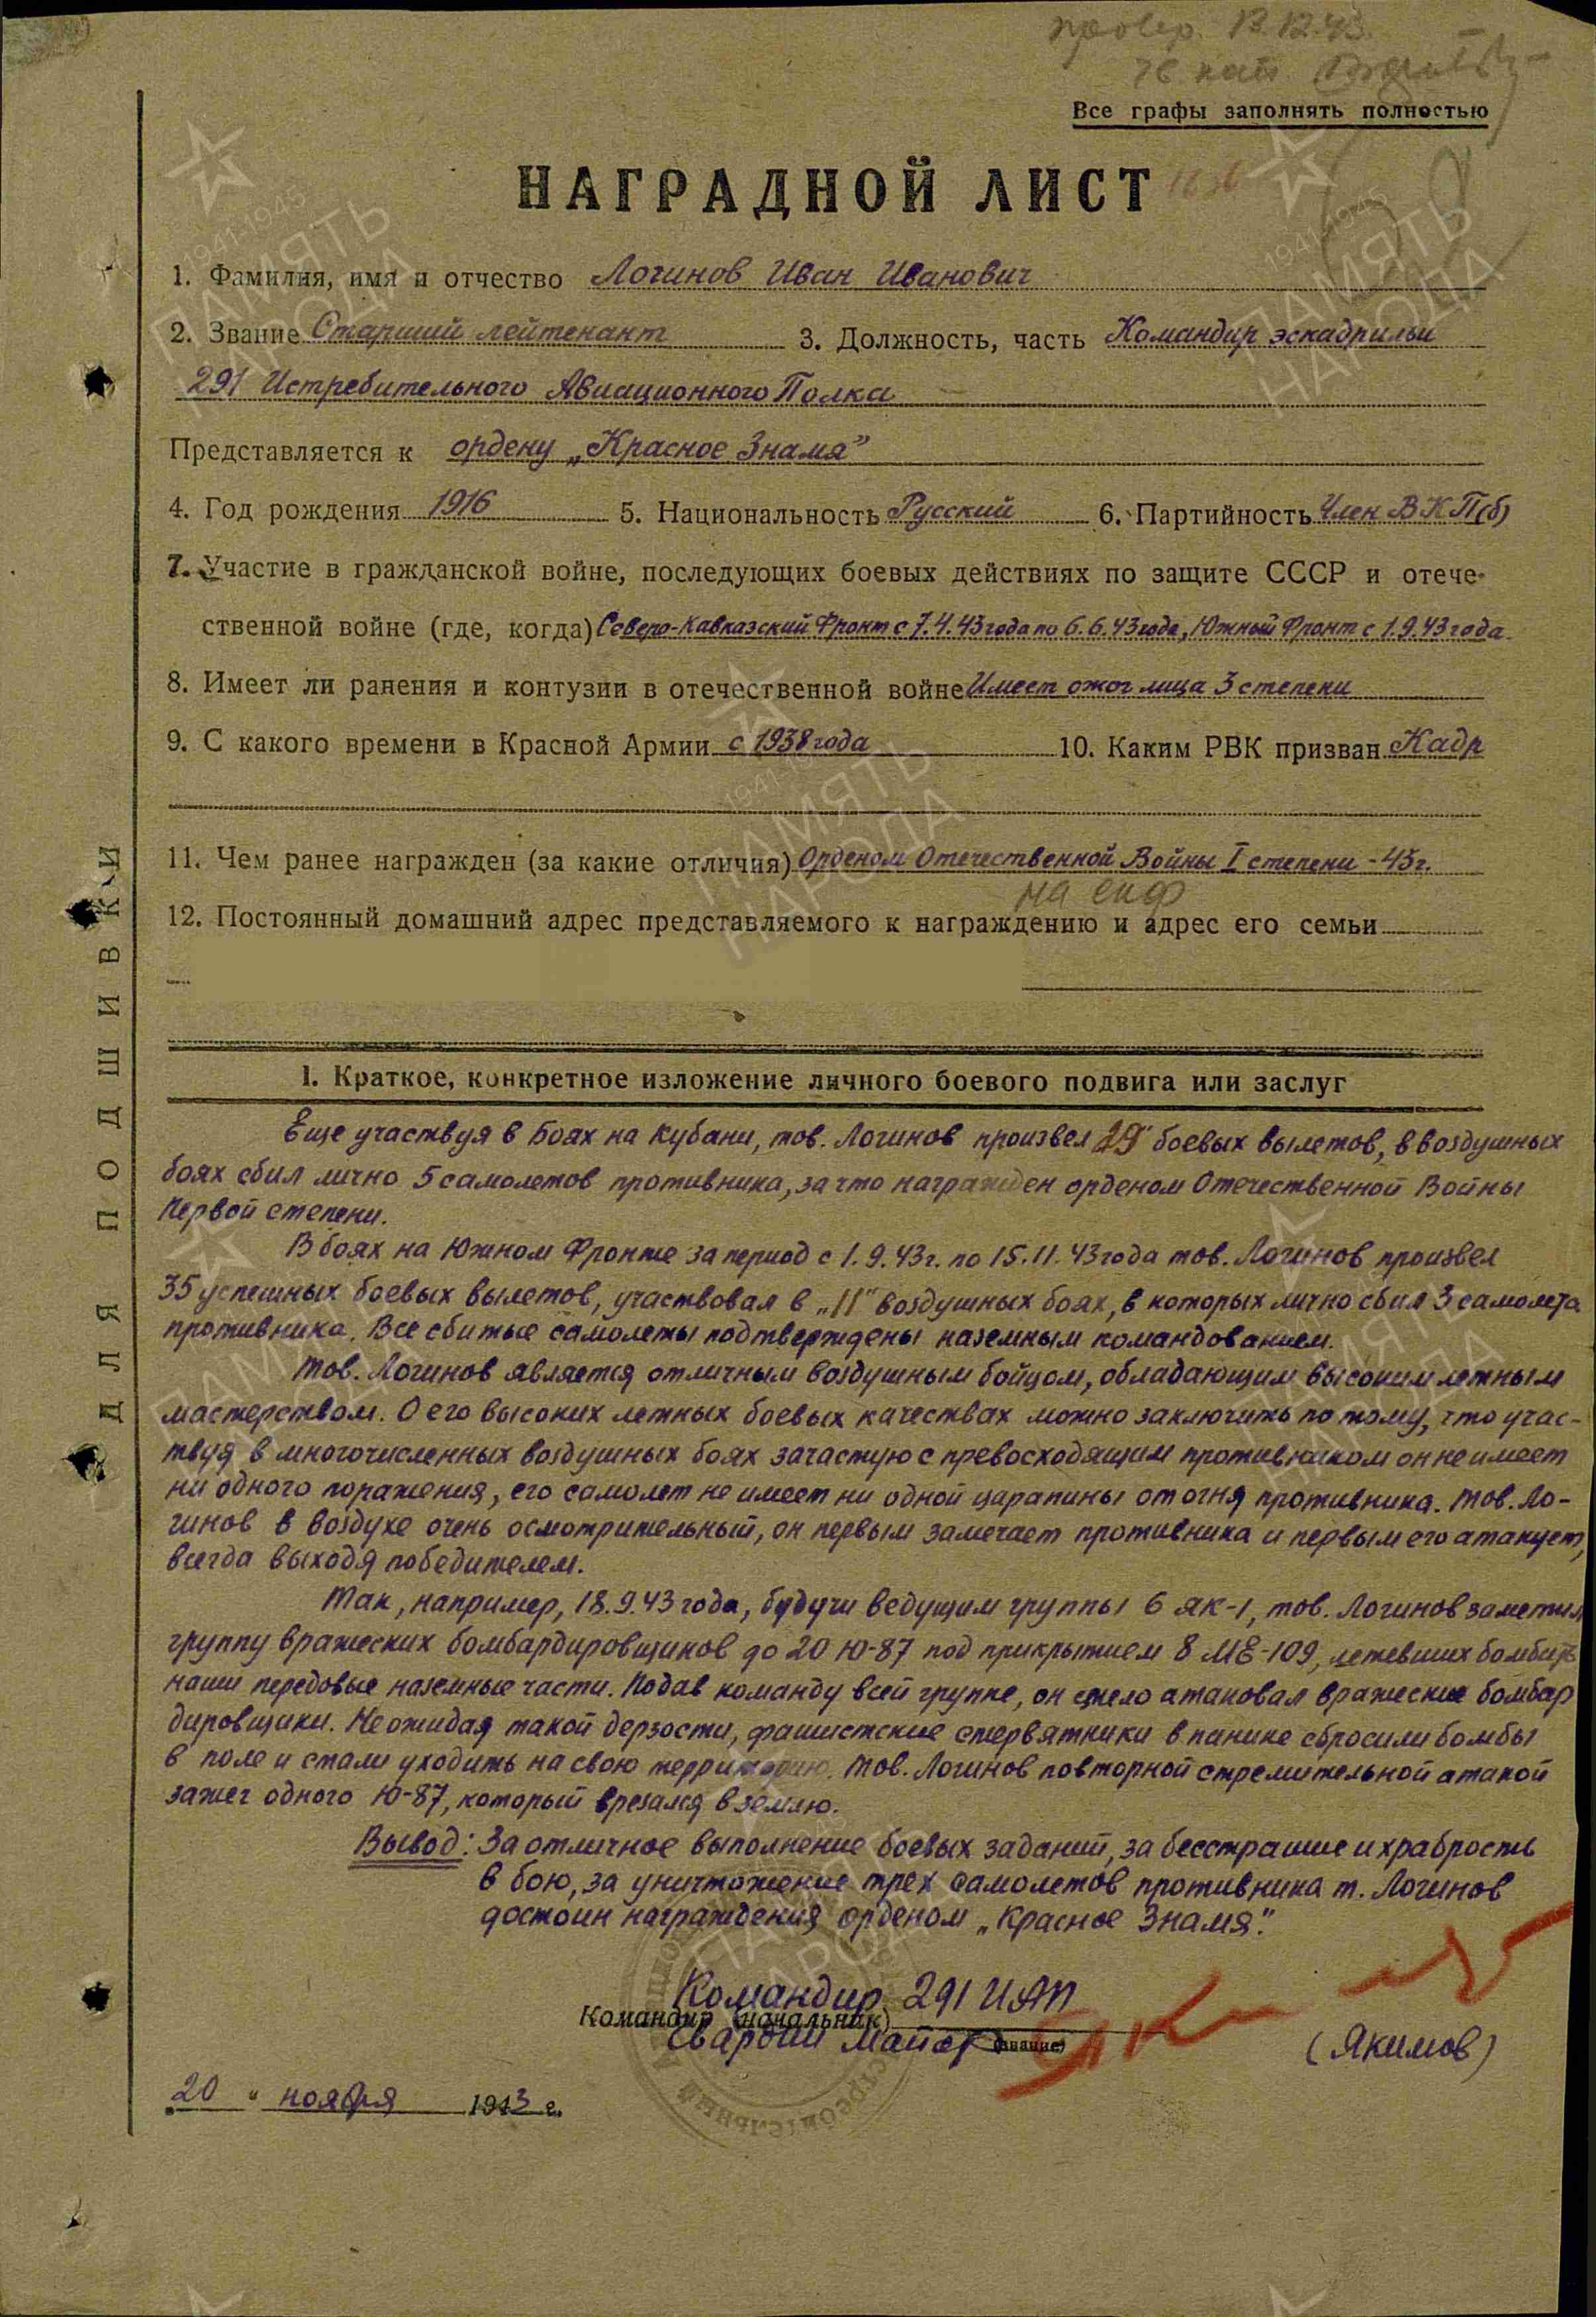 провер. 13.12.43.
Все графы заполнять полностью
НАГРАДНОЙ ЛИСТ
1. Фамилия, имя и отчество Логинов Иван Иванович
2. Звание Старший лейтенант 3. Должность, часть Командир эскадрильи
291 Истребительного Авиационного Полка
Представляется к ордену „Красное Знамя”
4. Год рождения 1916 5. Национальность Русский 6. Партийность Член ВКП(б)
7. Участие в гражданской войне, последующих боевых действиях по защите СССР и отече-
ственной войне (где, когда) Северо-Кавказский Фронт с 7.4.43 года по 6.6.43 года, Южный Фронт с 1.9.43 года.
8. Имеет ли ранения и контузии в отечественной войне Имеет ожог лица 3 степени
9. С какого времени в Красной Армии с 1938 года 10. Каким РВК призван Кадр
11. Чем ранее награжден (за какие отличия) Орденом Отечественной Войны I степени - 43г.
на скф
12. Постоянный домашний адрес представляемого к награждению и адрес его семьи
I. Краткое, конкретное изложение личного боевого подвига или заслуг
Еще участвуя в Боях на Кубани, тов. Логинов произвел 29 боевых вылетов, в воздушных
боях сбил лично 5 самолетов противника, за что награжден орденом Отечественной Войны
Первой степени.
В боях на Южном Фронте за период с 1.9.43г. по 15.11.43 года тов. Логинов произвел
35 успешных боевых вылетов, участвовал в „11” воздушных боях, в которых лично сбил 3 самолета
противника. Все сбитые самолеты подтверждены наземным командованием.
Тов. Логинов является отличным воздушным бойцом, обладающим высоким летным
мастерством. О его высоких летных боевых качествах можно заключить по тому, что учас-
твуя в многочисленных воздушных боях зачастую с превосходящим противником он не имеет
ни одного поражения, его самолет не имеет ни одной царапины от огня противника. Тов. Ло-
гинов в воздухе очень осмотрительный, он первым замечает противника и первым его атакует,
всегда выходя победителем.
Так, например, 18.9.43 года, будучи ведущим группы 6 ЯК-1, тов. Логинов заметил
группу вражеских бомбардировщиков до 20 Ю-87 под прикрытием 8 МЕ-109, летевших бомбить
наши передовые наземные части. Подав команду всей группе, он смело атаковал вражеские бомбар
дировщики. Не ожидая такой дерзости, фашистские стервятники в панике сбросили бомбы
в поле и стали уходить на свою территорию. Тов. Логинов повторной стремительной атакой
зажег одного Ю-87, который врезался в землю.
Вывод: За отличное выполнение боевых заданий, за бесстрашие и храбрость
в бою, за уничтожение трех самолетов противника т. Логинов
достоин награждения орденом „Красное Знамя”.
Командир 291 ИАП
Командир (начальник)
Гвардии Майор (звание) Яки (Якимов)
20 „ ноября 1943 г.
ДЛЯ ПОДШИВКИ
1941-1945
ПАМЯТЬ
НАРОДА